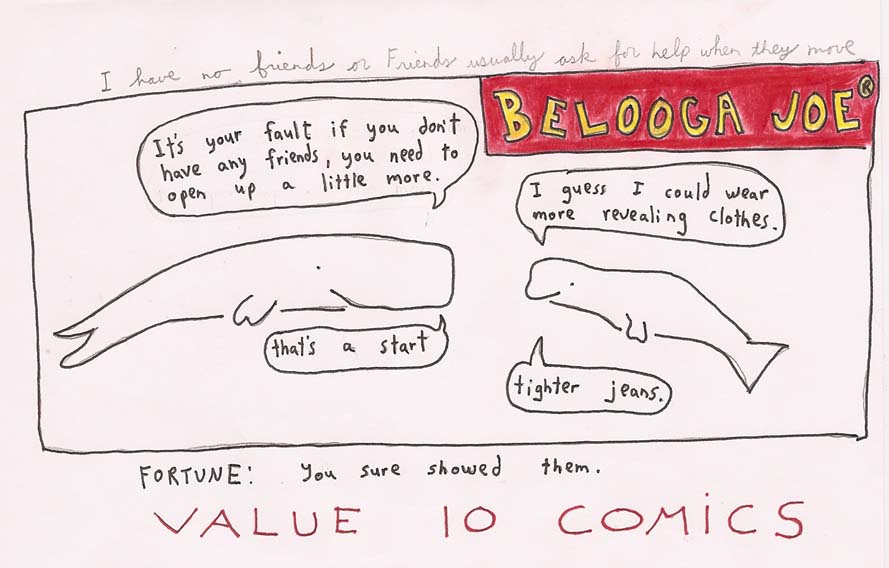 I have no friends or Friends usually ask for help when they move
BELOOGA JOE®
It's your fault if you don't
have any friends, you need to
open up a little more.
I guess I could wear
more revealing clothes.
that's a start
tighter jeans.
FORTUNE: You sure showed them.
VALUE 10 COMiCS